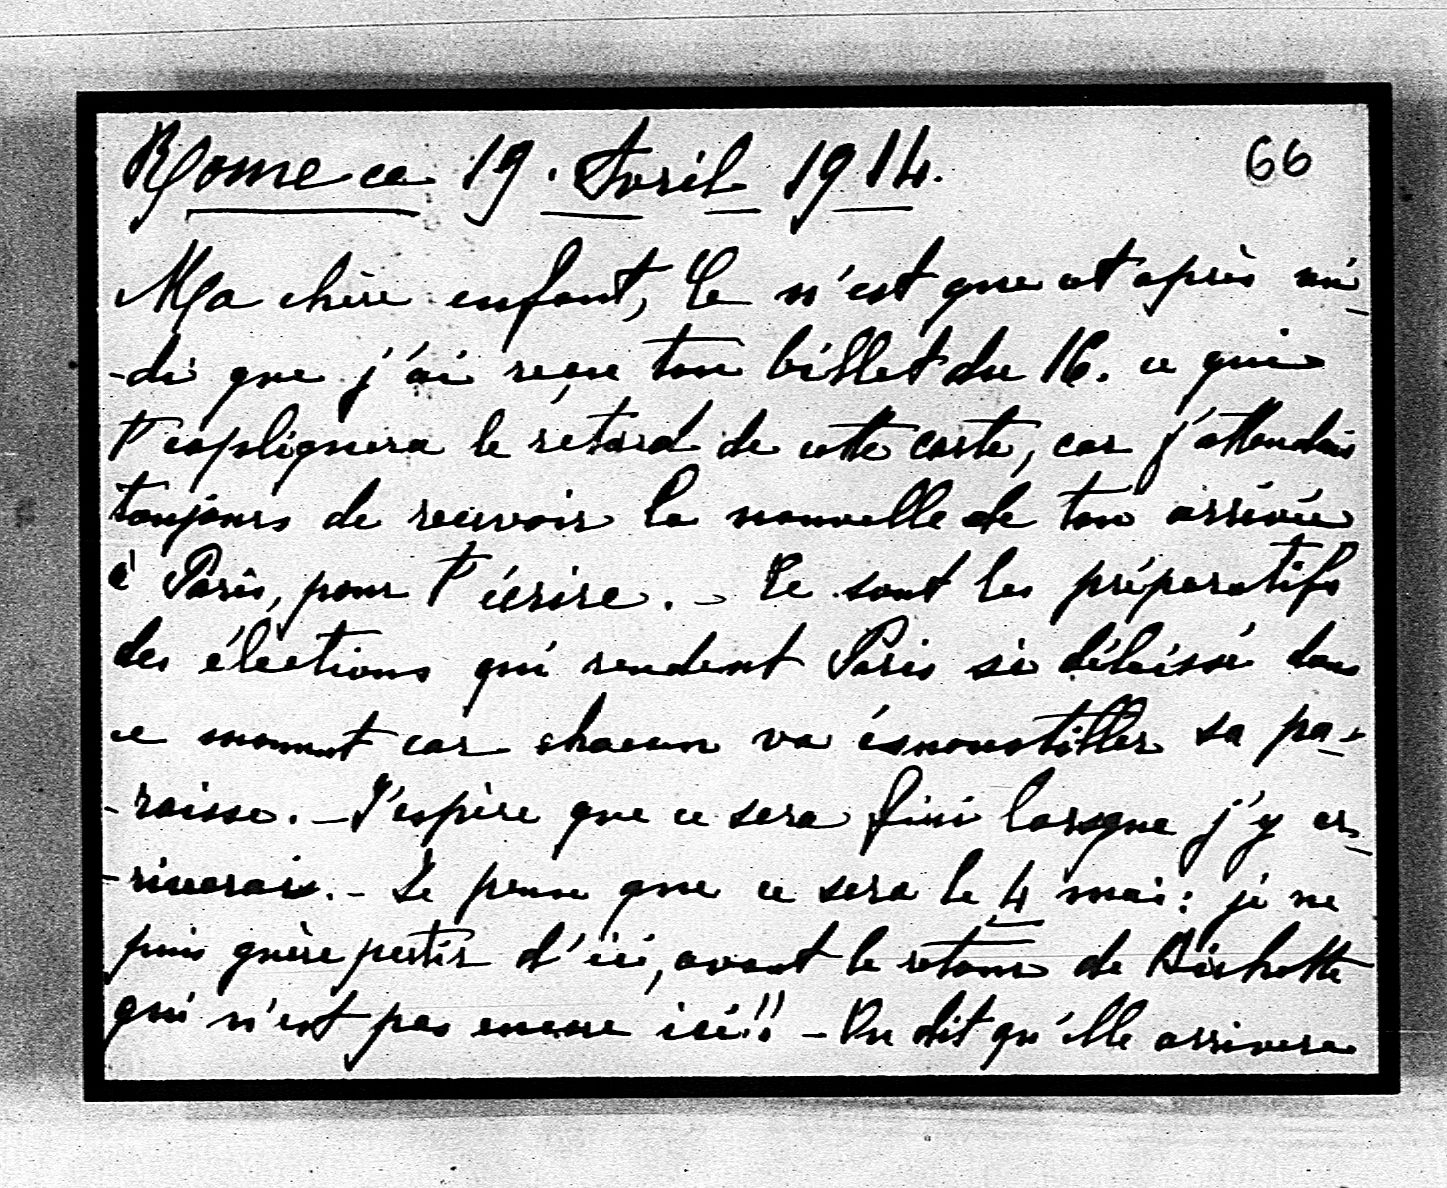 Rome ce 19. Avril 1914.
66
Ma chère enfant, Ce n'est que cet après mi-
-di que j'ai reçu ton billet du 16. ce qui
t'expliquera le rétard de cette carte, car j'attendais
toujours de recevoir la nouvelle de ton arrivée
à Paris, pour t'écrire. - Ce sont les préparatifs
des élections qui rendent Paris si délaissé dans
ce moment car chacun va émoustiller sa pa-
-roisse. - J'espère que ce sera fini lorsque j'y ar-
-riverais. - Je pense que ce sera le 4 mai: je ne
puis guère partir d'ici, avant le retour de Bichette
qui n'est pas encore ici!! - On dit qu'elle arrivera